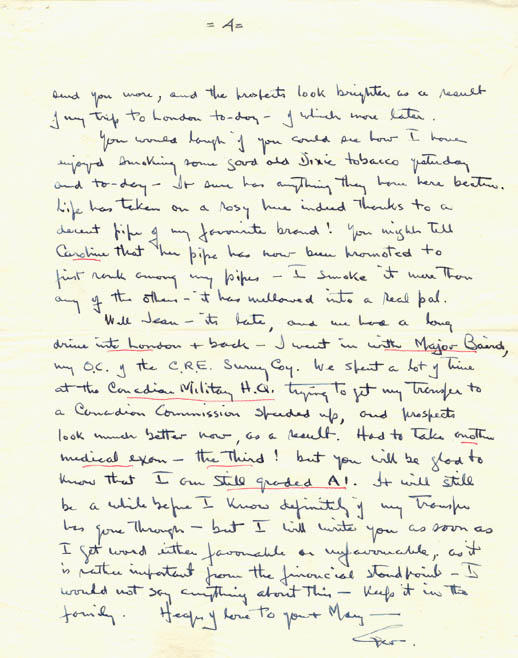 = 4 =
send you more, and the prospects look brighter as a result
of my trip to London to-day - of which more later.
You would laugh if you could see how I have
enjoyed smoking some good old Dixie tobacco yesterday
and to-day - It sure has anything they have here beaten.
Life has taken on a rosy hue indeed thanks to a
decent pipe of my favourite brand! You might tell
Caroline that her pipe has now been promoted to
first rank among my pipes - I smoke it more than
any of the others - it has mellowed into a real pal.
Well Jean - its late, and we had a long
drive into London + back - I went in with Major Baird,
my O.C. of the C.R.E. Survey Coy. We spent a lot of time
at the Canadian Military H.Q. trying to get my transfer to
a Canadian Commission speeded up, and prospects
look much better now, as a result. Had to take another
medical exam - the third! but you will be glad to
know that I am still graded A1. It will still
be a while before I know definitely if my transfer
has gone through - but I will write you as soon as
I get word either favourable or unfavourable, as it
is rather important from the financial standpoint - I
would not say anything about this - keep it in the
family. Heaps of love to you + Mary -